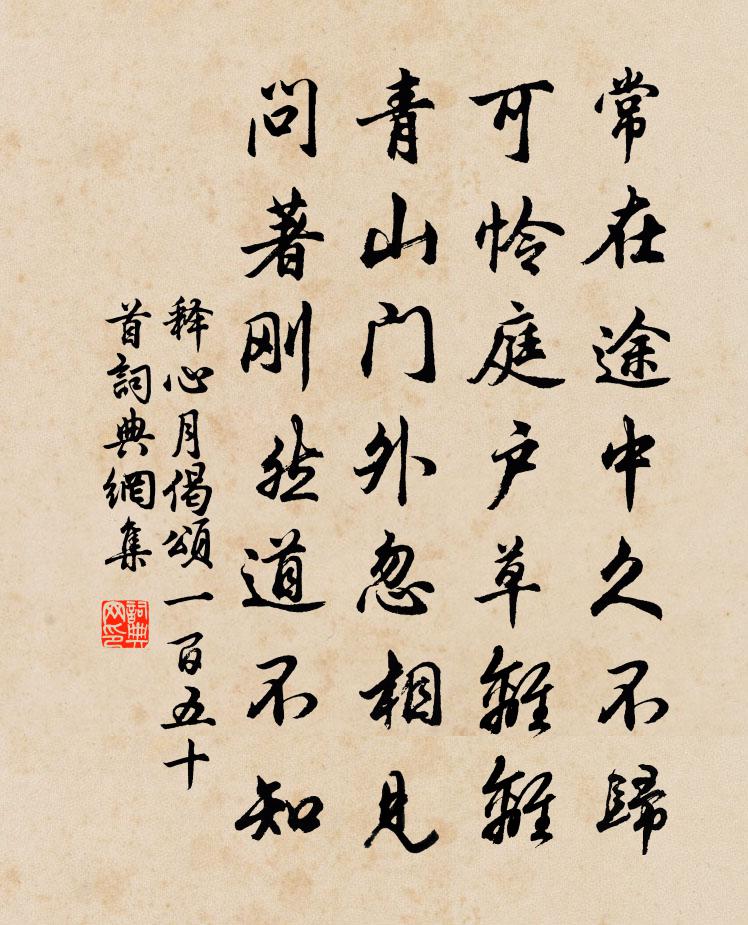 常在途中久不歸
可怜庭户草離離
青山门外忽相見
问著刚然道不知
释心月偈頌一百五十
首詞典網集
詞典网印